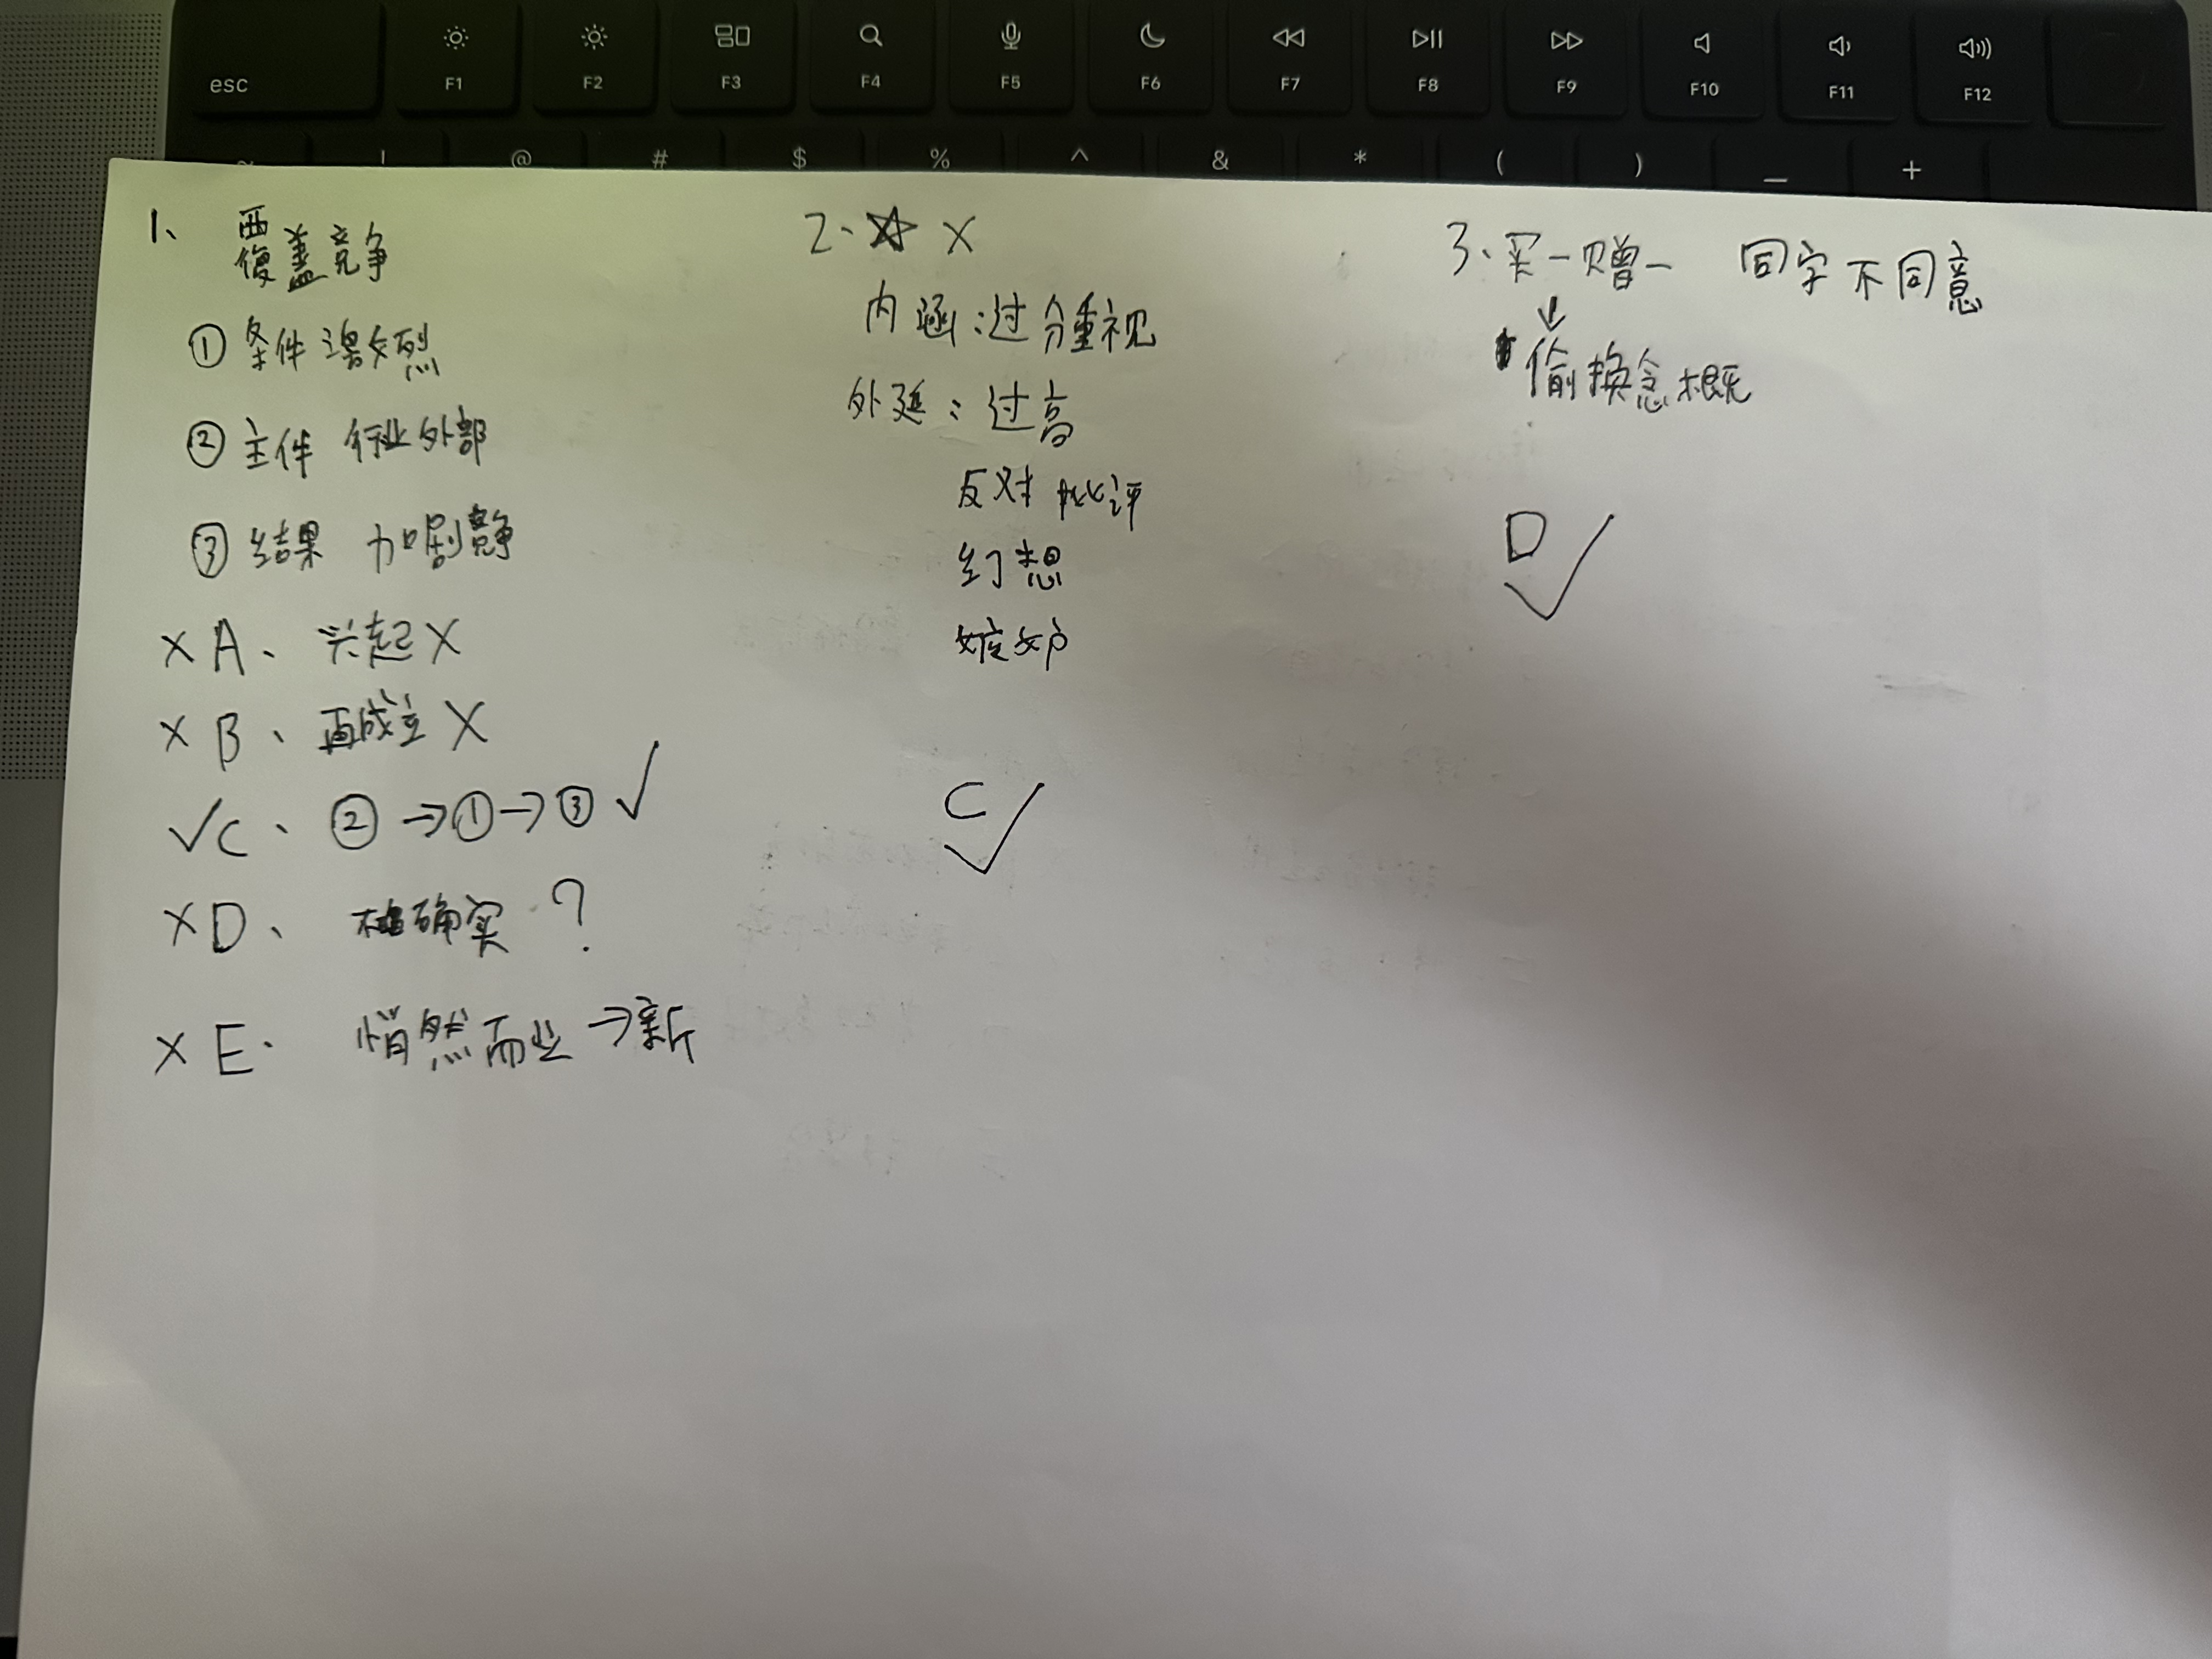 esc
F1 F2 F3 F4 F5 F6 F7 F8 F9 F10 F11 F12
! @ # $ % ^ & * ( ) _ +
1、 覆盖竞争
① 条件 激烈
② 主体 行业外部
③ 结果 加剧竞争
X A、 兴起 X
X B、 再成立 X
√ C、 ② → ① → ③ √
X D、 确实 ?
X E. 悄然而 → 新
2. ☆ X
内涵:过分重视
外延:过高
反对 批评
幻想
嫉妒
C √
3. 买一赠一 同字不同意
↓
偷换念概
D √